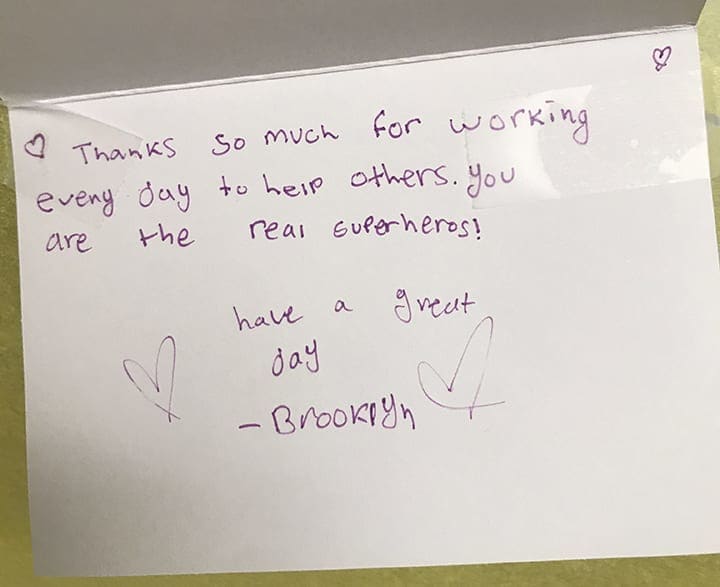 ♡ Thanks so much for working
every day to help others. You
are the real superheros!
have a great
day
- Brooklyn